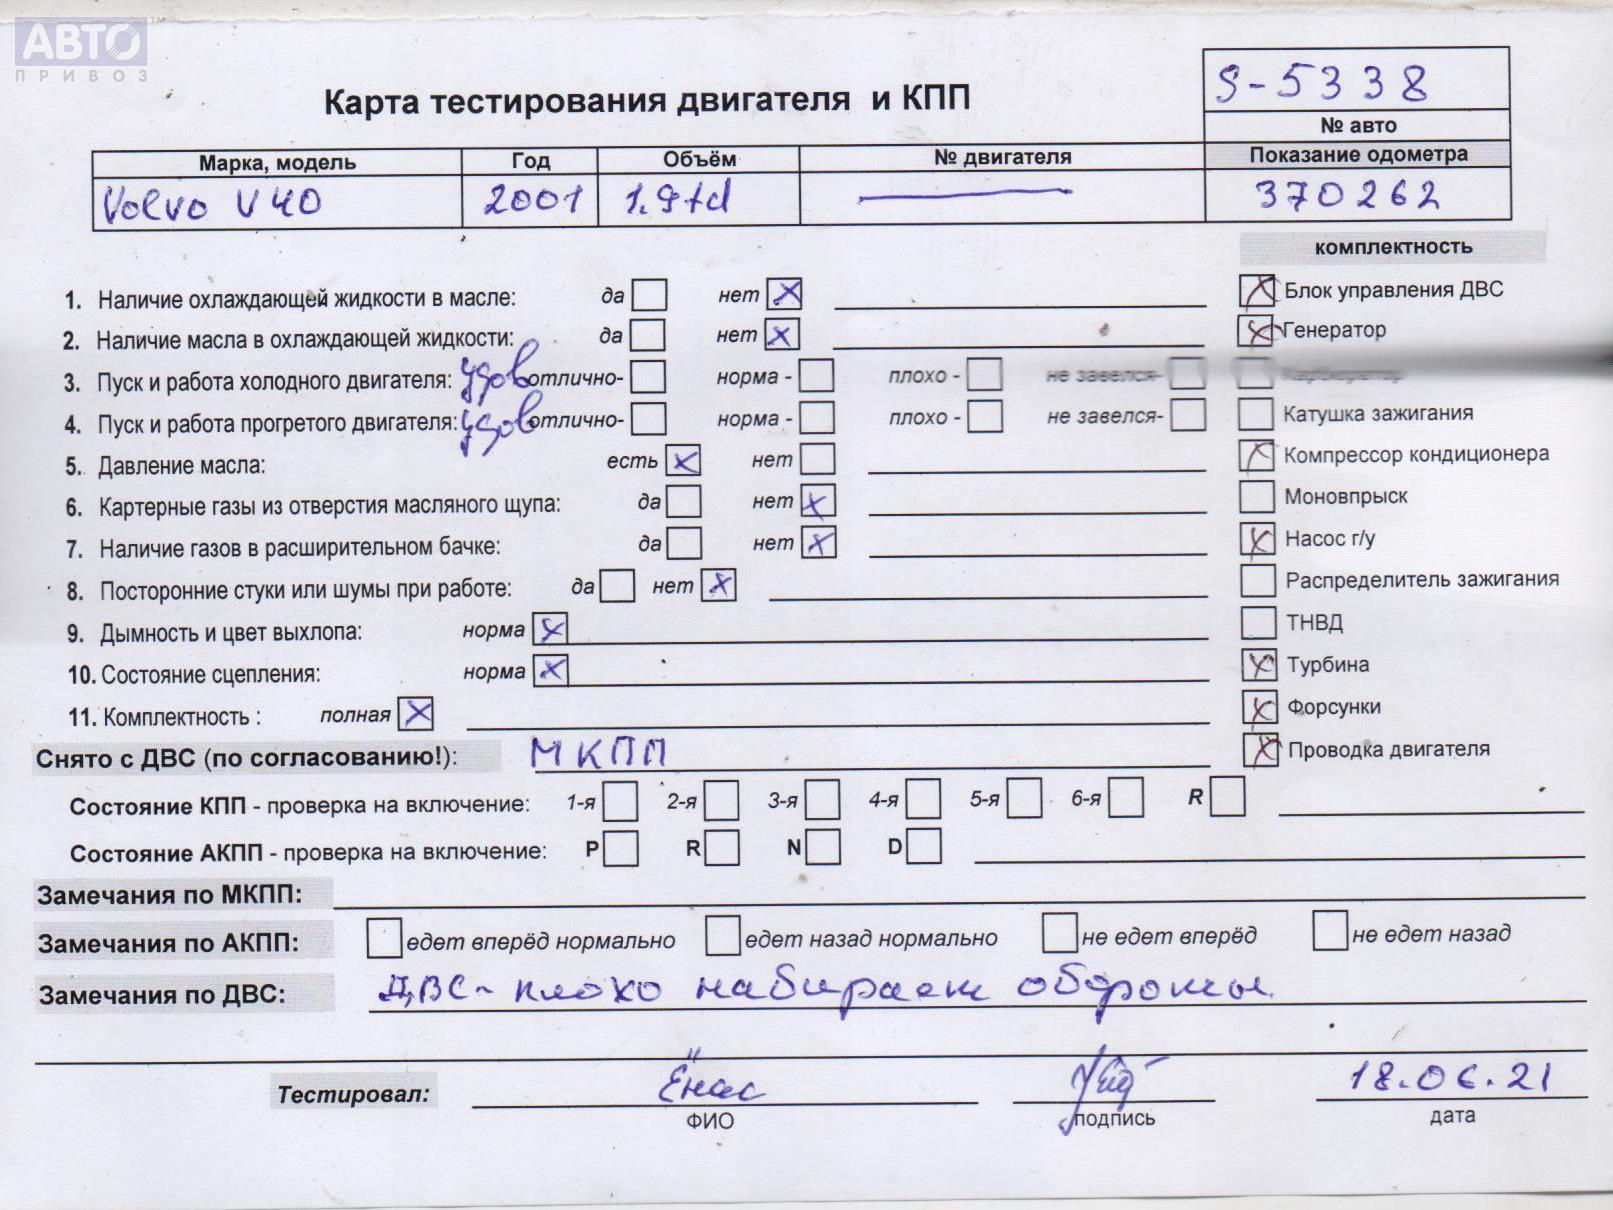 АВТО™
ПРИВОЗ
S-5338
Карта тестирования двигателя и КПП
№ авто
Марка, модель Год Объём № двигателя Показание одометра
Volvo V40 2001 1.9td 370262
комплектность
1. Наличие охлаждающей жидкости в масле: да нет Блок управления ДВС
2. Наличие масла в охлаждающей жидкости: да нет Генератор
3. Пуск и работа холодного двигателя: удов отлично- норма - плохо - не завелся- Карбюратор
4. Пуск и работа прогретого двигателя: удов отлично- норма - плохо - не завелся- Катушка зажигания
5. Давление масла: есть нет Компрессор кондиционера
6. Картерные газы из отверстия масляного щупа: да нет Моновпрыск
7. Наличие газов в расширительном бачке: да нет Насос г/у
8. Посторонние стуки или шумы при работе: да нет Распределитель зажигания
9. Дымность и цвет выхлопа: норма ТНВД
10. Состояние сцепления: норма Турбина
11. Комплектность : полная Форсунки
Снято с ДВС (по согласованию!): МКПП Проводка двигателя
Состояние КПП - проверка на включение: 1-я 2-я 3-я 4-я 5-я 6-я R
Состояние АКПП - проверка на включение: P R N D
Замечания по МКПП:
Замечания по АКПП: едет вперёд нормально едет назад нормально не едет вперёд не едет назад
Замечания по ДВС: ДВС - плохо набирает обороты
Тестировал: Ёнас 18.06.21
ФИО подпись дата